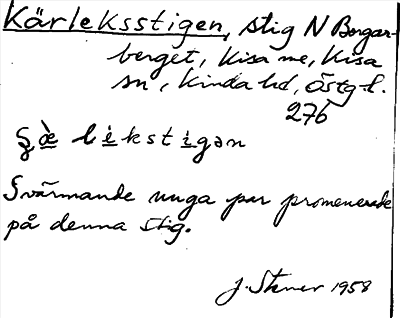 Kärleksstigen, stig N Borgar-
berget, Kisa me, Kisa
sn, Kinda hd, Östg l.
276
Svärmande unga par promenerade
på denna stig.
J. Stener 1958